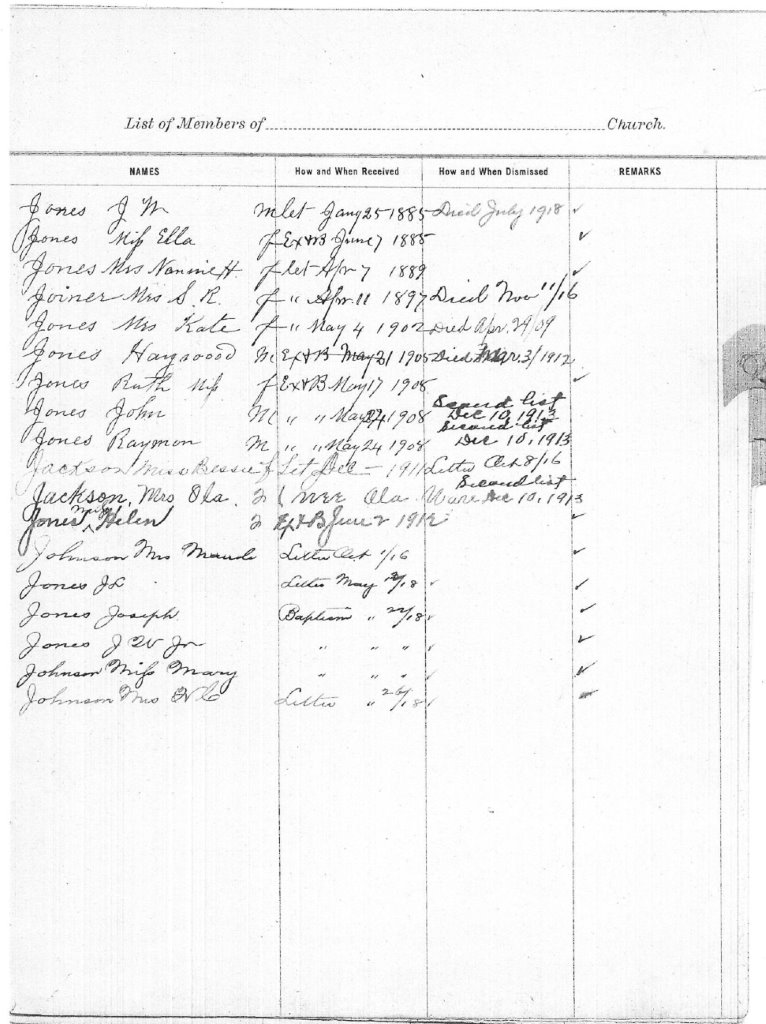 List of Members of Church.
NAMES How and When Received How and When Dismissed REMARKS
Jones J W M let Jany 25 1885 Died July 1918 ✓
Jones Miss Ella f Ex & B June 7 1885 ✓
Jones Mrs Nannie H. f let Apr 7 1889 ✓
Joiner Mrs S. R. f " Apr. 11 1897 Died Nov 11/16
Jones Mrs Kate f " May 4 1902 Died Apr. 29/09
Jones Haywood M Ex & B May 21 1905 Died Mar 3/1912
Jones Ruth Miss f Ex & B May 17 1908 ✓
Jones John M " " May 24, 1908 Second list Dec 10, 1913
Jones Raymon M " " May 24 1908 Second list Dec 10, 1913
Jackson Miss Bessie f Let Dec - 1911 Letter Oct 8/16
Jackson, Mrs Ola. F (nee Ola Ware Second list Dec 10, 1913
Jones Miss Helen F Ex & B June 2 1912 ✓
Johnson Mrs Maude Letter Oct 1/16 ✓
Jones J L Letter May /18 ✓ ✓
Jones Joseph Baptism " 22/18 ✓ ✓
Jones J W Jr " " " ✓ ✓
Johnson Miss Mary " " " ✓ ✓
Johnson Mrs Letter " 26/18 ✓